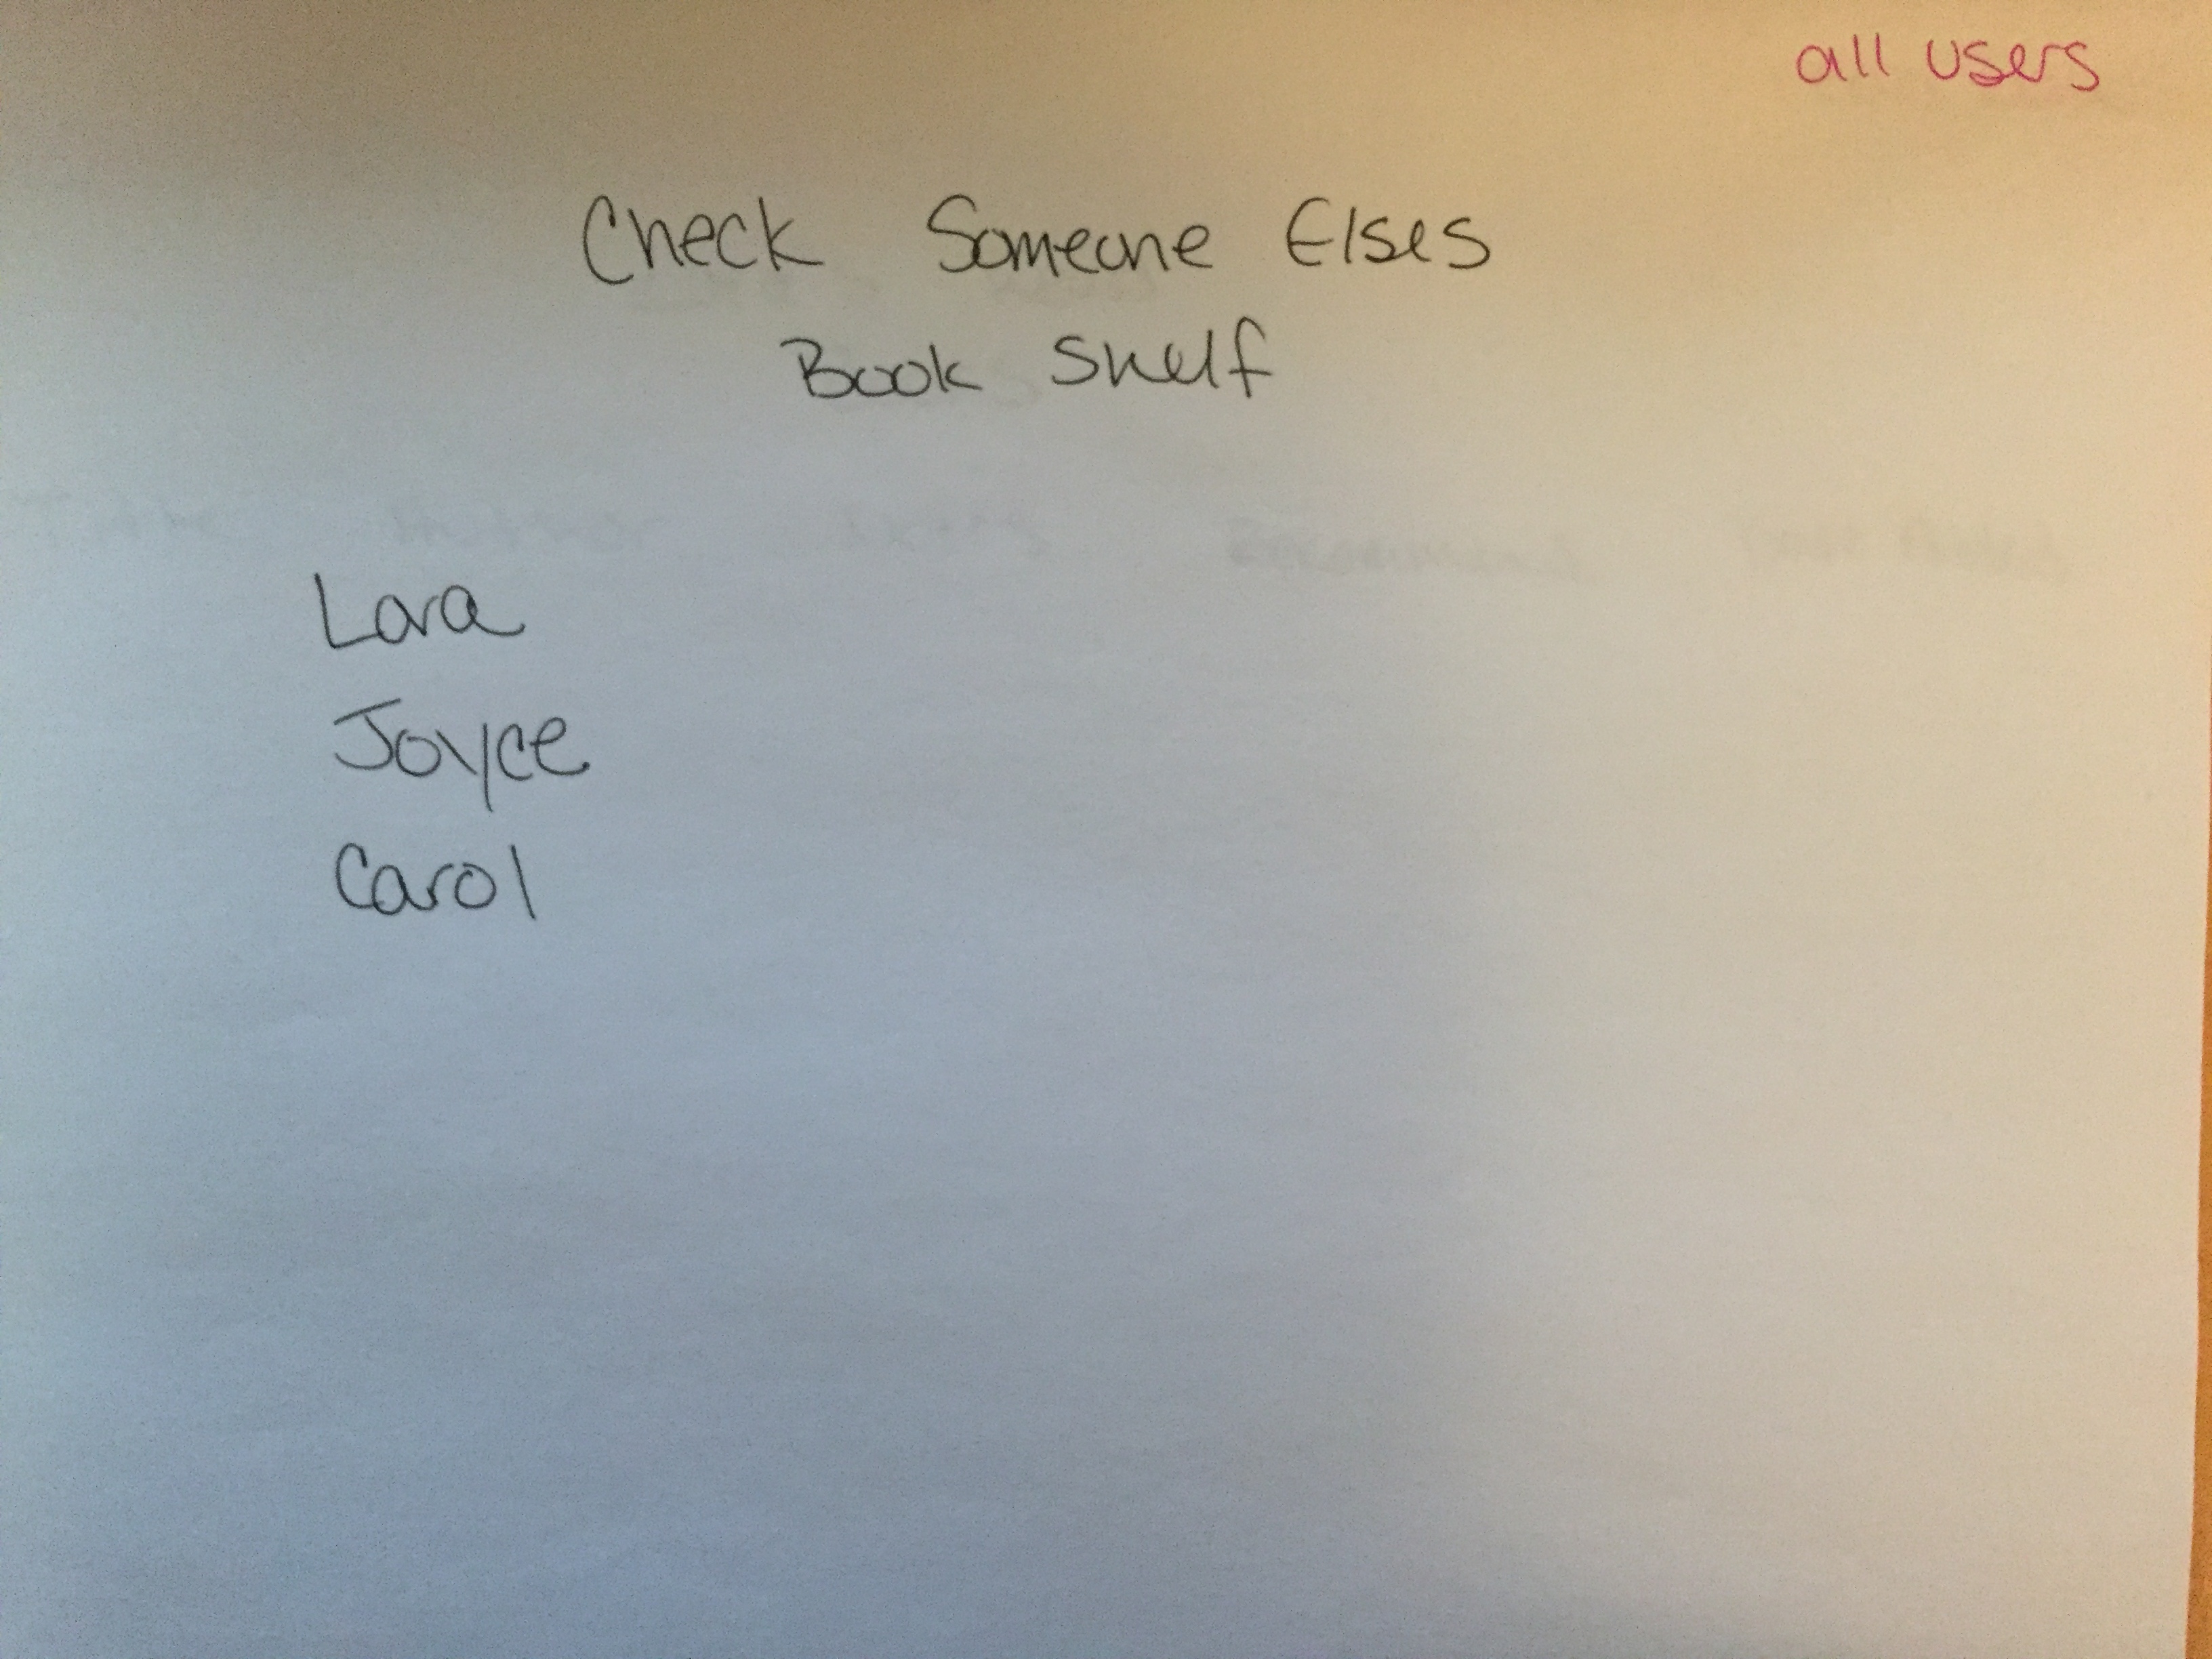 all users
Check Someone Elses
Book Shelf
Lara
Joyce
Carol